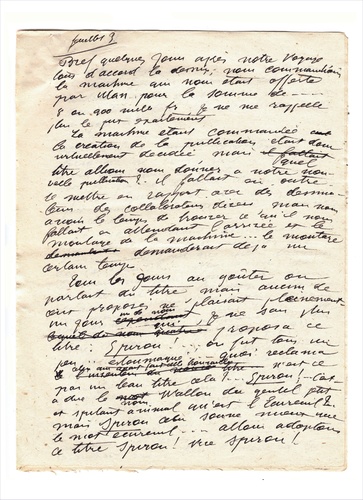 feuillet 3
Bref quelques jours après notre voyage
tous d'accord la dessus, nous commandions
la machine qui nous était offerte
par Man pour la somme de ----
8 ou 900 mille fr Je ne me rappelle
plus le prix exactement
La machine étant commandée
la création de la publication était donc
virtuellement décidée mais quel
titre allions nous donner a notre nou-
velle publication ? il fallait en outre
se mettre en rapport avec des dessina-
teurs des collaborateurs divers mais nous
avions le temps de trouver ce qu'il nous
fallait en attendant l'arrivée et le
montage de la machine ... le montage
demanderait déjà un
certain temps
Tous les jours au goûter on
parlait du titre mais aucun de
ceux proposés ne plaisait pleinement
un jours Je ne sais plus
qui proposa ce
titre : Spirou ! ... on fut tous un
peu estomaqué quoi reclama
n'est ce
pas un beau titre cela ? ... Spirou, c'est
a dire le nom Wallon du gentil petit
et spitant animal qu'est l'Ecureuil
mais Spirou cela sonne mieux que
le mot ecureuil ... allons adoptons
ce titre Spirou ! vive Spirou !